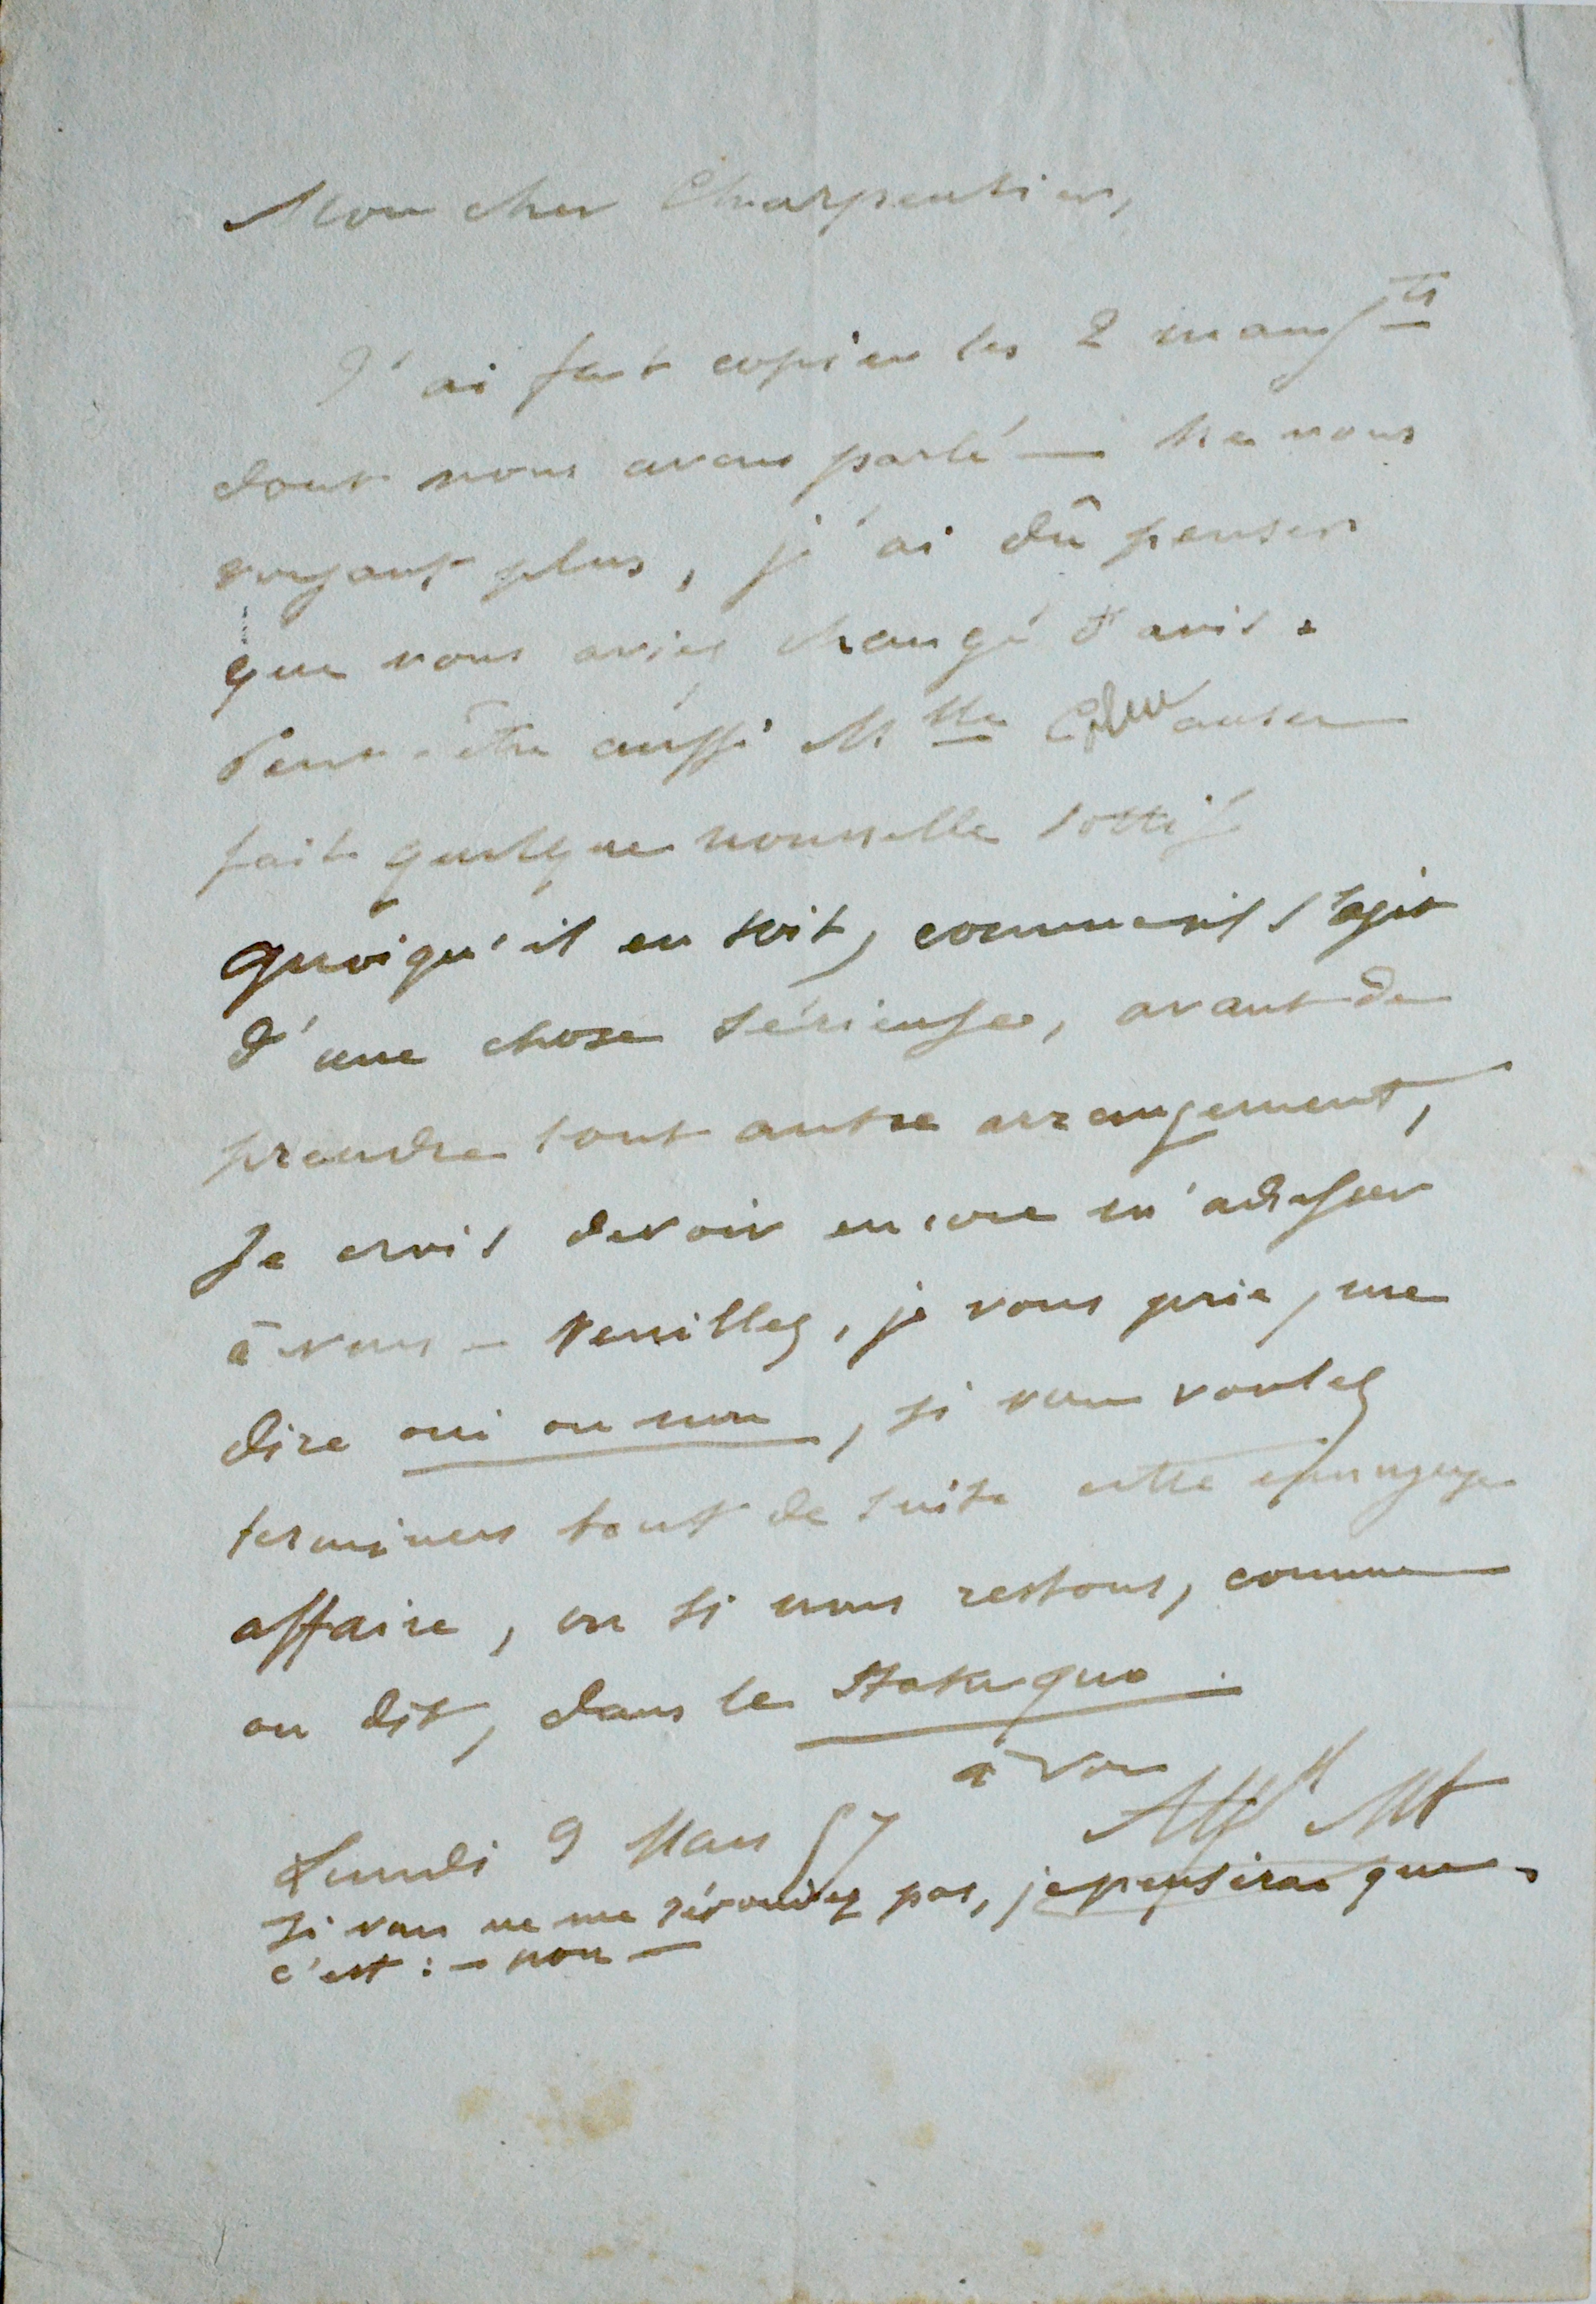 Mon cher Charpentier,
J'ai fait copier les 2 manusts
dont nous avons parlé — Ne vous
voyant plus, j'ai dû penser
que vous aviez changé d'avis.
Peut-être aussi Mlle
fait quelque nouvelle sottise
quoiqu'il en soit, comme il s'agit
d'une chose sérieuse, avant de
prendre tout autre arrangement,
Je crois devoir encore m'adresser
à vous — Veuillez, je vous prie, me
dire oui ou non, si vous voulez
terminer tout de suite cette
affaire, ou si nous restons, comme
on dit, dans le Statu quo.
à vous
Alfd Mt
Lundi 9 Mars 57
Si vous ne me répondez pas, je penserai que
c'est : — non —